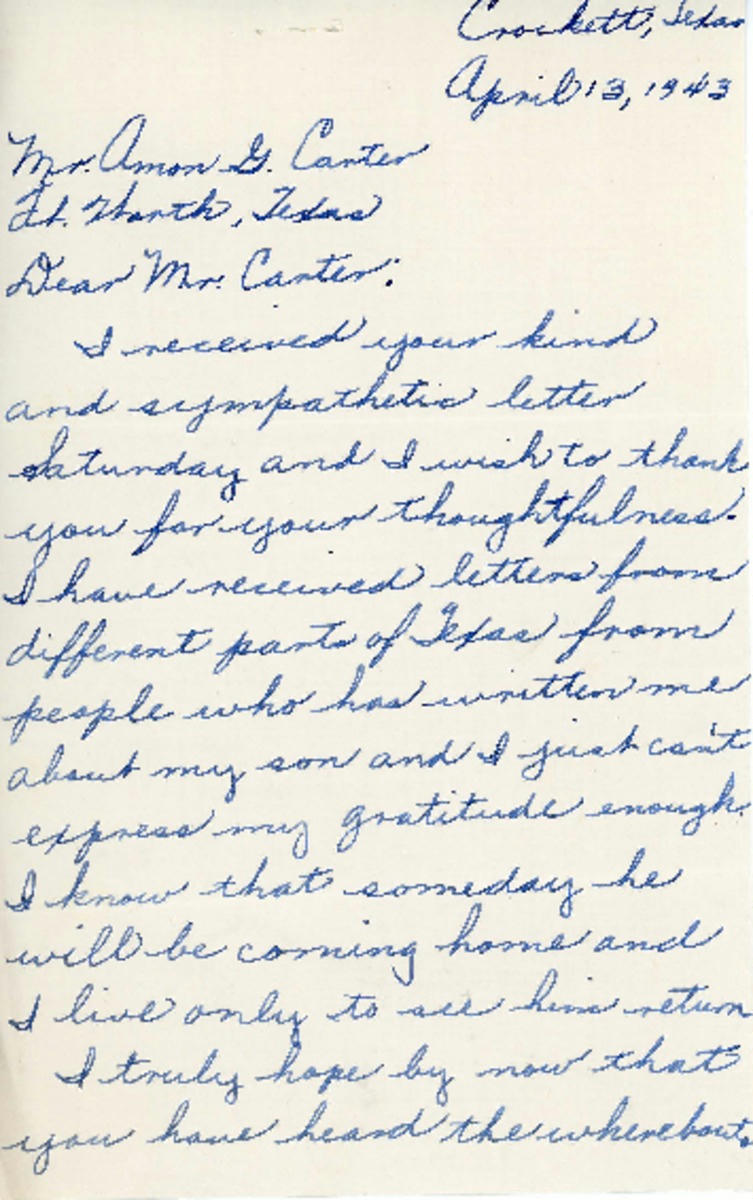 Crockett, Texas
April 13, 1943
Mr. Amon G. Carter
Ft. Worth, Texas
Dear Mr. Carter:
I received your kind
and sympathetic letter
Saturday and I wish to thank
you for your thoughtfulness.
I have received letters from
different parts of Texas from
people who has written me
about my son and I just can't
express my gratitude enough.
I know that someday he
will be coming home and
I live only to see him return
I truly hope by now that
you have heard the wherebouts